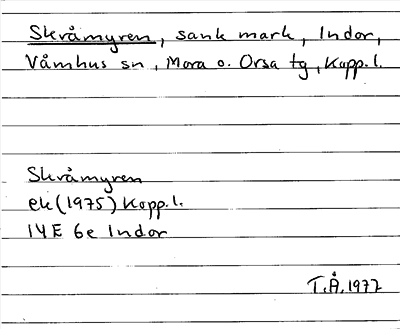 Skråmyren, sank mark, Indor,
Våmhus sn, Mora o. Orsa tg, Kopp.l.
Skråmyren
ek (1975) Kopp.l.
14E 6e Indor
T.Å. 1977